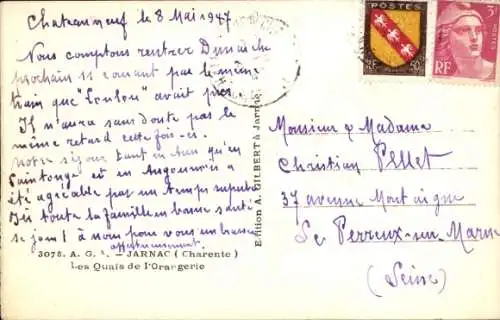 Chateauneuf le 8 Mai 1947
Nous comptons rentrer Dimanche
prochain 11 courant par le même
train que "Loulou" avait pris.
Il n'aura sans doute pas le
même retard cette fois-ci.
Notre séjour tant en bien qu'en
Saintonge et en Angoumois a
été agréable par un temps superbe
Ici toute la famille en bonne santé
se joint à nous pour vous embrasser
affectueusement.
3078. A. G. - JARNAC (Charente)
Les Quais de l'Orangerie
Edition A. GILBERT à Jarnac
POSTES
RF
50
3F
POSTES
RF
Monsieur & Madame
Christian Pellet
37 avenue Montaigne
Le Perreux-sur-Marne
(Seine)